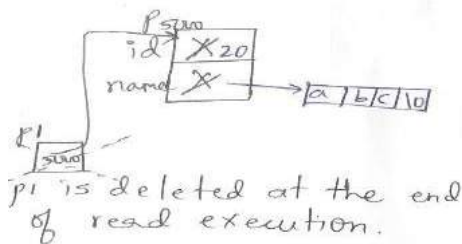 P 5000
id X 20
name X a b c \0
p1
5000
p1 is deleted at the end
of read execution.